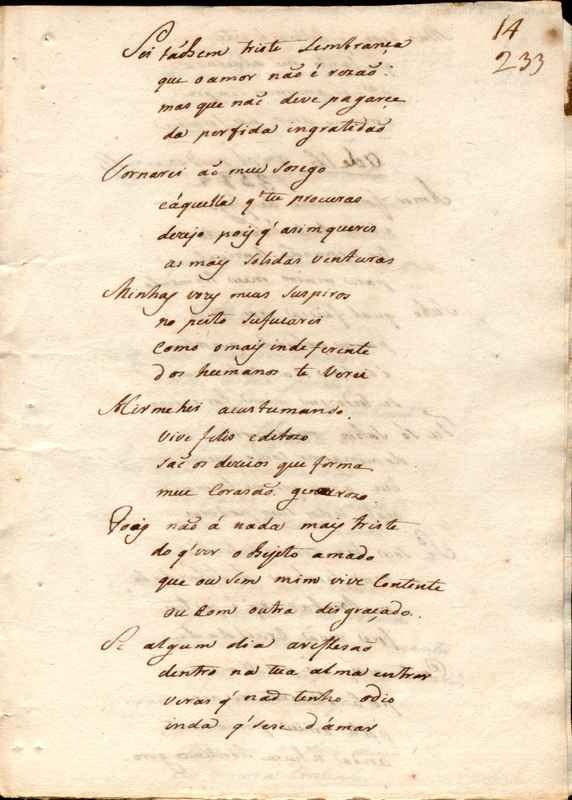 14
233
Sei tãobem triste Lembrança
que o amor não é rezão:
mas que nãc deve pagarçe
da perfida ingratedão
Tornarei aõ meu sosego
e áquella q' tu procuras
dezejo pois q' asim queres
as mais solidas venturas
Minhas vozes meus suspiros
no peito sufucarei
Como o mais indeferente
dos humanos te Verei
Hirmehei acustumando.
vive felis e ditozo
são os dezeios que forma
meu Corasão. generozo
Poiş não á nada mais triste
do q' ver o bjeto amado
que ou sem mim vive Contente
ou Com outra desgraçado.
Se algum dia areflesaõ
dentro na tua alma entrar
veras q' não tenho odio
inda q' sese d'amar